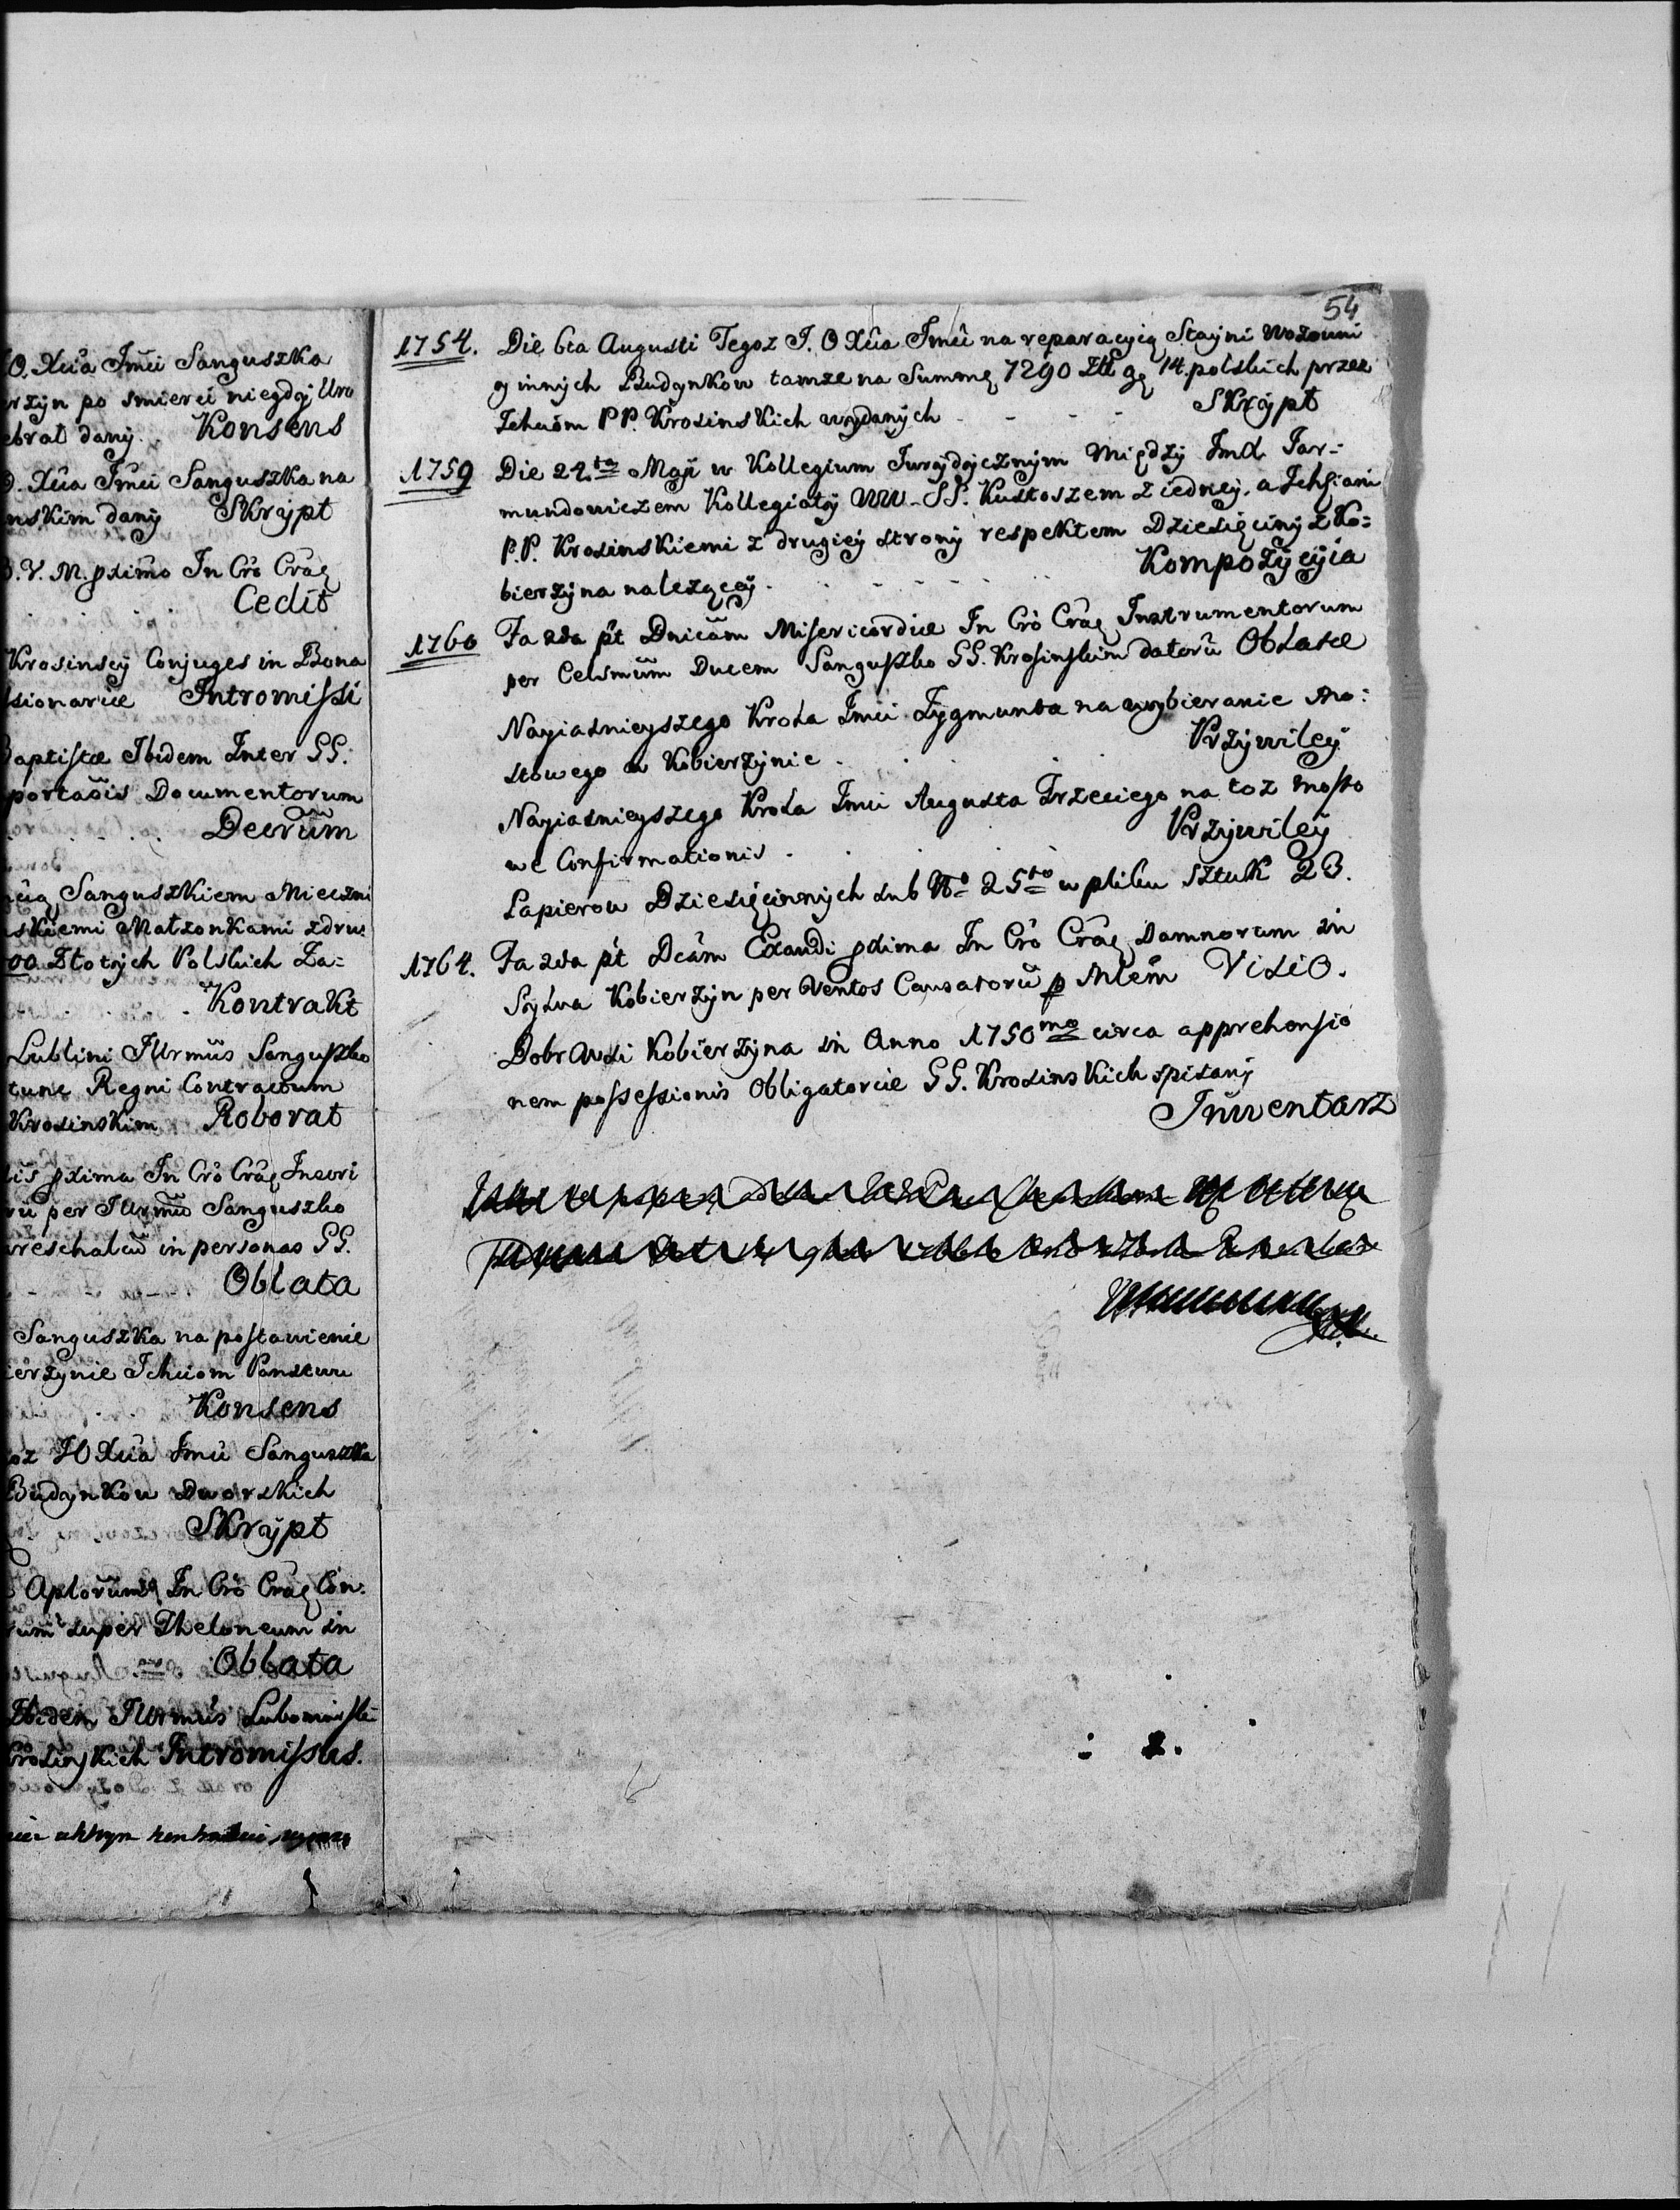 O. Xcia Jmci Sanguszka
erzyn po smierci niegdy Uro
ebrat dany. Konsens
O. Xcia Jmci Sanguszka na
nskim dany Skrypt
B. V. M. pximo In Crô Crâç
Cedit
Krosinscy Conjuges in Bona
ssionarie Intromissi
Baptistæ Ibidem Inter GG.
portaois Documentorum
Decrûm
Xcią Sanguszkiem Mieczni
skiemi Małzonkami zdru
00 Złotych Polskich Za=
Kontrakt
Lublini Illrmus Sanguszko
tunc Regni Contractum
Krosinskim Roborat
lis pxima In Crô Crâç Inscri
rũ per Illrmũ Sanguszko
areschalcũ in personas GG.
Oblata
Sanguszka na postawienie
ierzynie Ichciom Panstwu
Konsens
oz JO Xcia Jmci Sanguszka
Budynkow Dworskich
Skrypt
Aplorum In Crô Crâç Con.
rum super Theloneum in
Oblata
Ibidem Illrmus Lubomirski
Krosinskich Intromissus.
54
1754. Die 6ta Augusti Tegoz J. O Xcia Jmci na reparacyią Stayni Wozowni
y innych Budynkow tamze na Summę 7290 Zł gę 14. polskich przez
Ichciom PP. Krosinskich wydanych - - - Skrypt
1759 Die 24.ta Maji w Kollegium Jurydycznym Między Jmd. Jar=
mundowiczem Kollegiaty WW. SS. Kustoszem z iedney. a Ichsciami
P.P. Krosinskiemi z drugiey strony respektem Dziesięciny z Ko=
bierzyna nalezącey. Kompozycyia
1760 Fa 2da pt Dnicam Misericordiæ In Crô Crâç Instrumentorum
per Celsmum Ducem Sanguszko GG. Krosinskim datorũ Oblatæ
Nayiasnieyszego Krola Jmci Zygmunta na wybieranie Mo=
stowego w Kobierzynie Przywiley
Nayiasnieyszego Krola Jmci Augusta Trzeciego na toz mosto
we Confirmationis Przywiley
Papierow Dziesięcinnych sub No 25to w pliku sztuk 23.
1764. Fa 2da pt Dcâm Exaudi pxima In Crô Crâç Damnorum in
Sylva Kobierzyn per Ventos Causatorũ p Mlêm Visio.
Dobr Wsi Kobierzyna in Anno 1750mo circa apprehensio
nem possessionis Obligatoriæ GG. Krosinskich spisany
Inwentarz